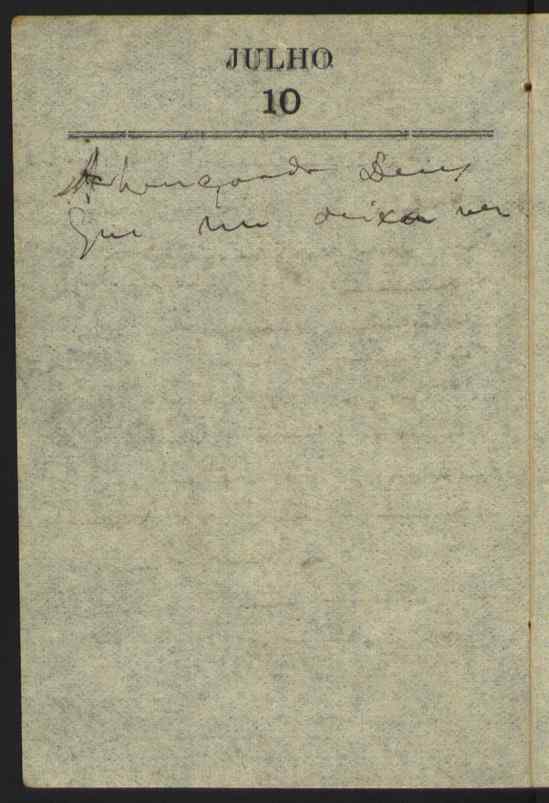 JULHO
10
Abençoado Deus
Que me deixa ver